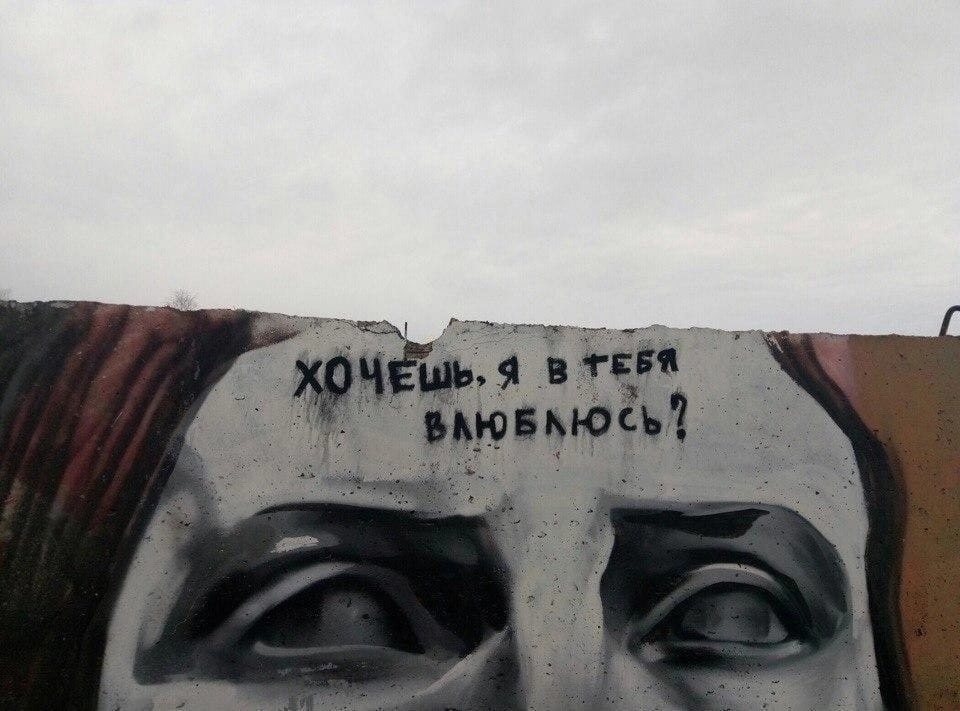 ХОЧЕШЬ, Я В ТЕБЯ
ВЛЮБЛЮСЬ?